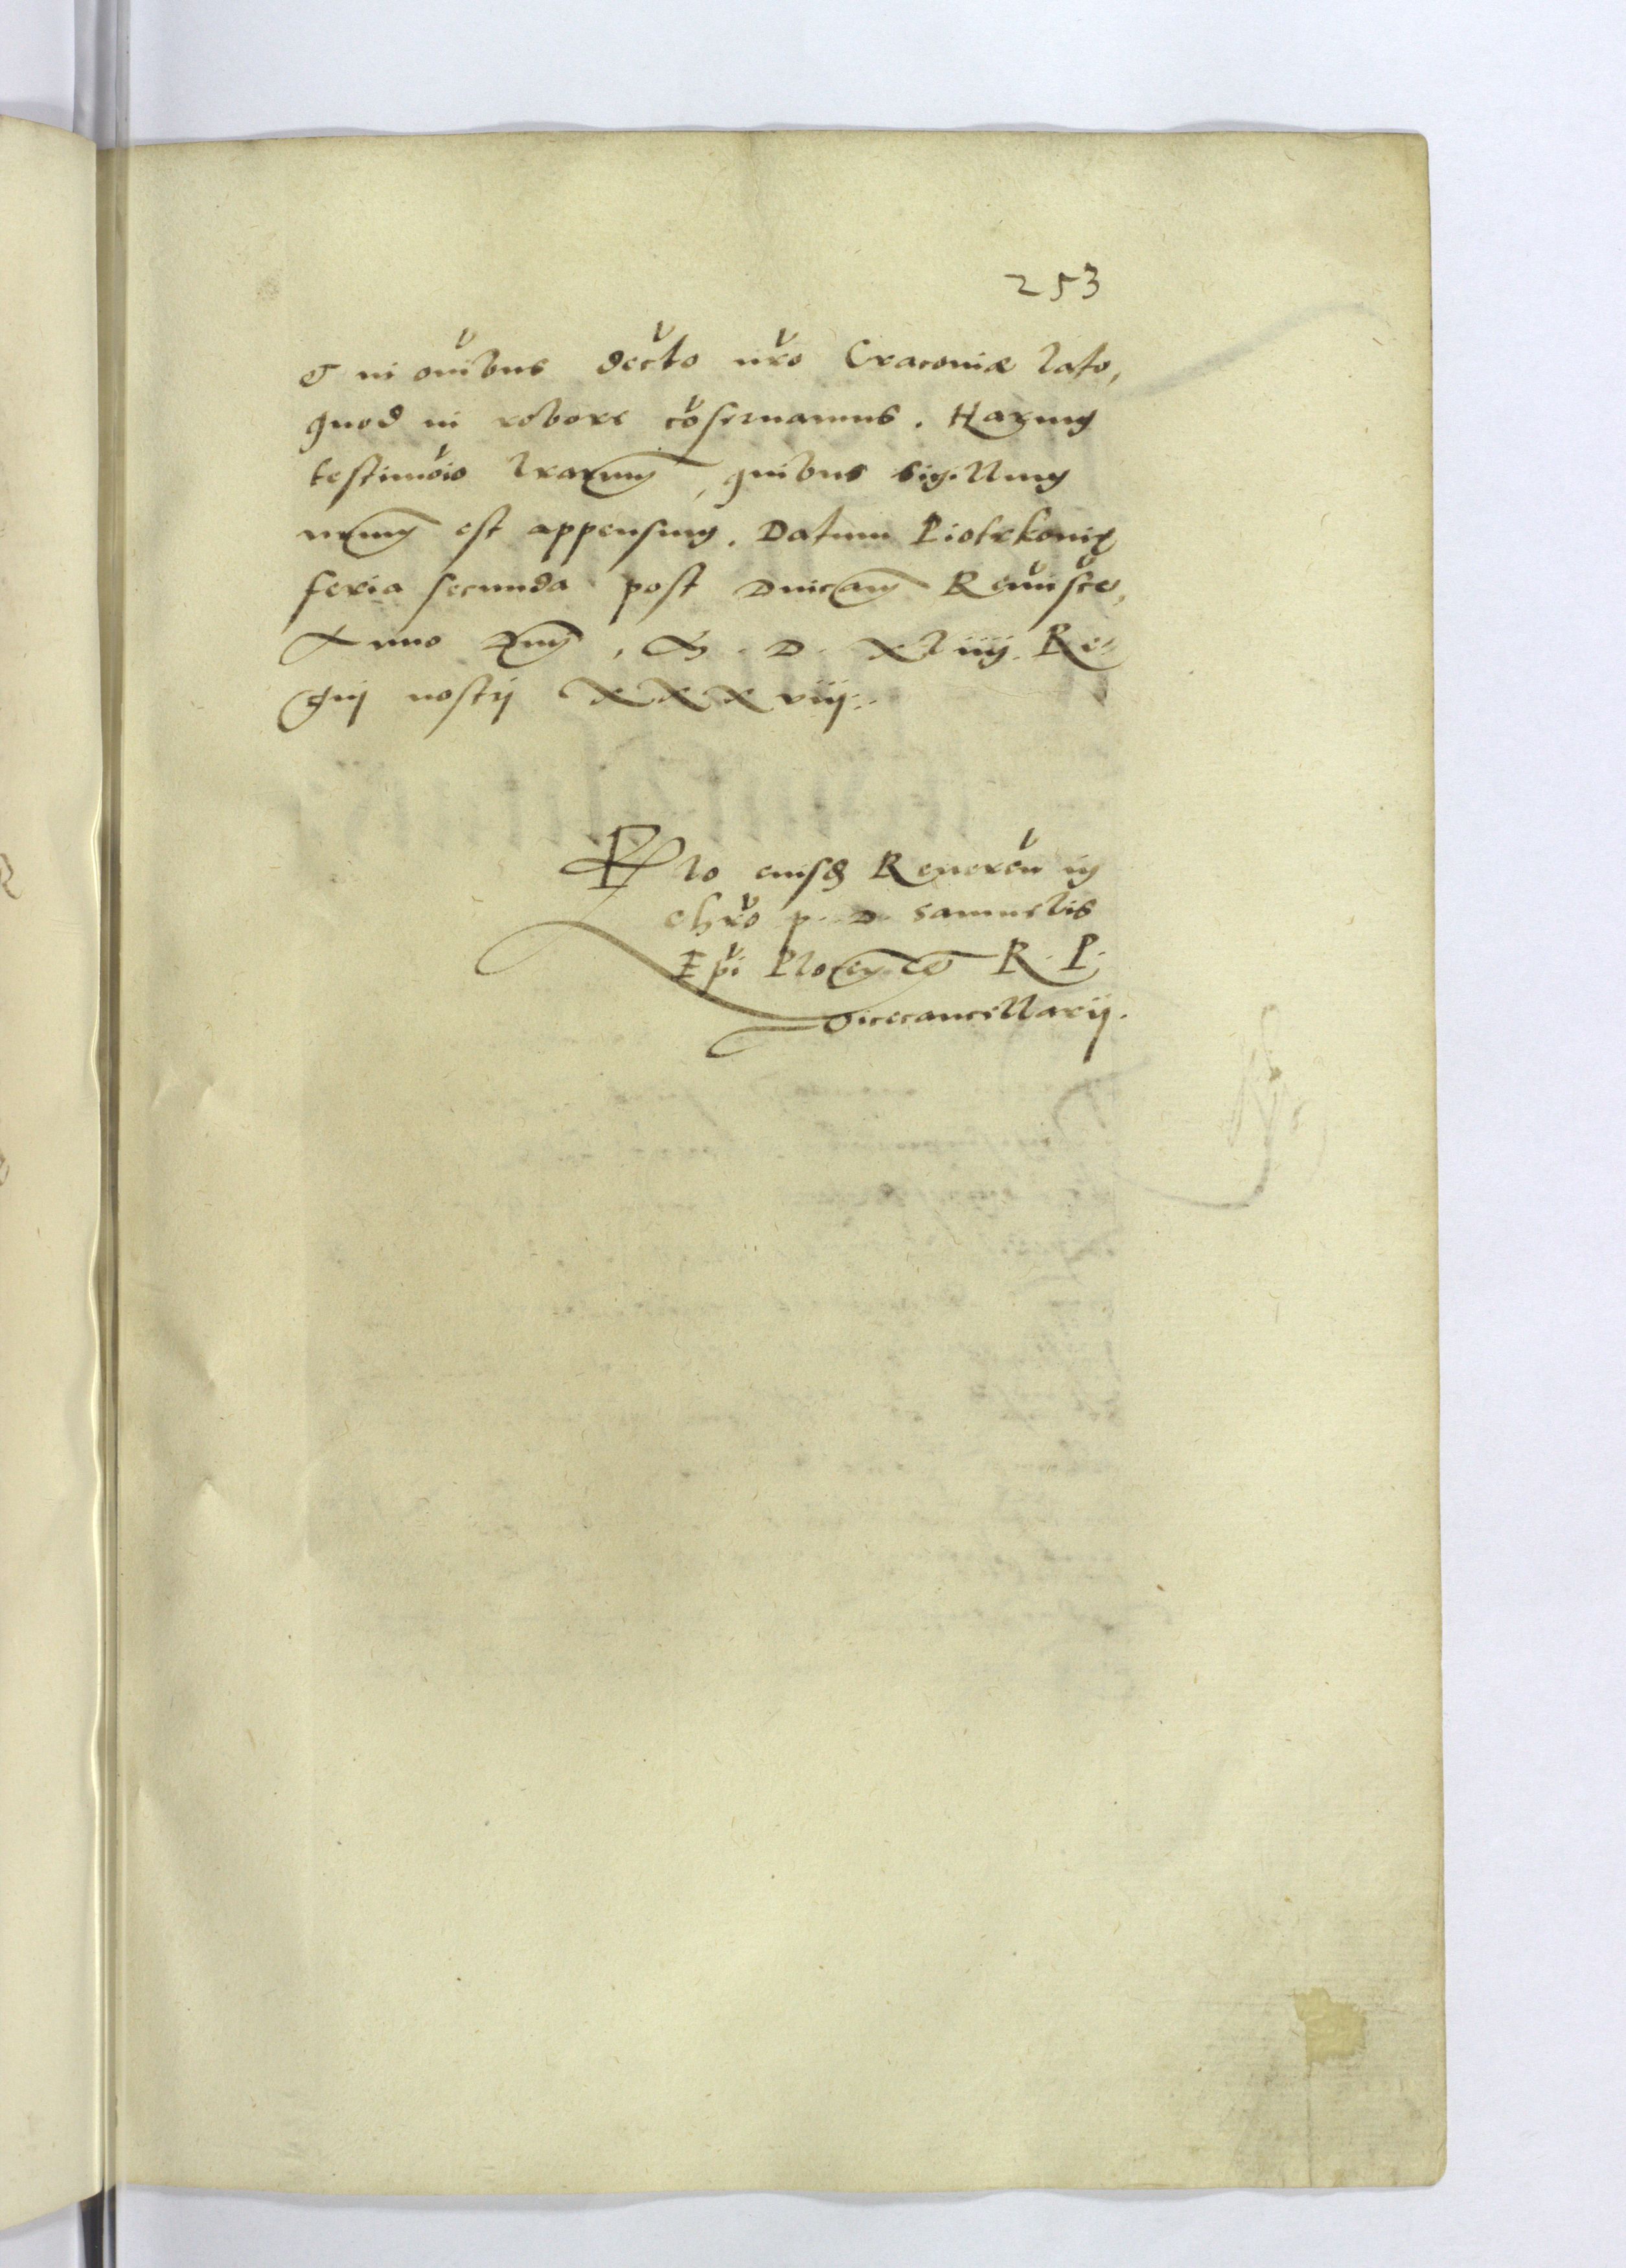 253
& in oibus decto nro Cracoviæ lato,
quod in robore coservamus. Harum
testimoio lrarum, quibus sigillum
nrum est appensum. Datum Piotrkoviæ
feria secunda post Dnicam Remisce,
Anno Dni, M. D. XLiiij. Re=
gnj nostrj XXXviij.
Rlo eiusd Reveren in
chro p. D. Samuelis
Epi Plocen. et R. P.
Vicecancellarij.